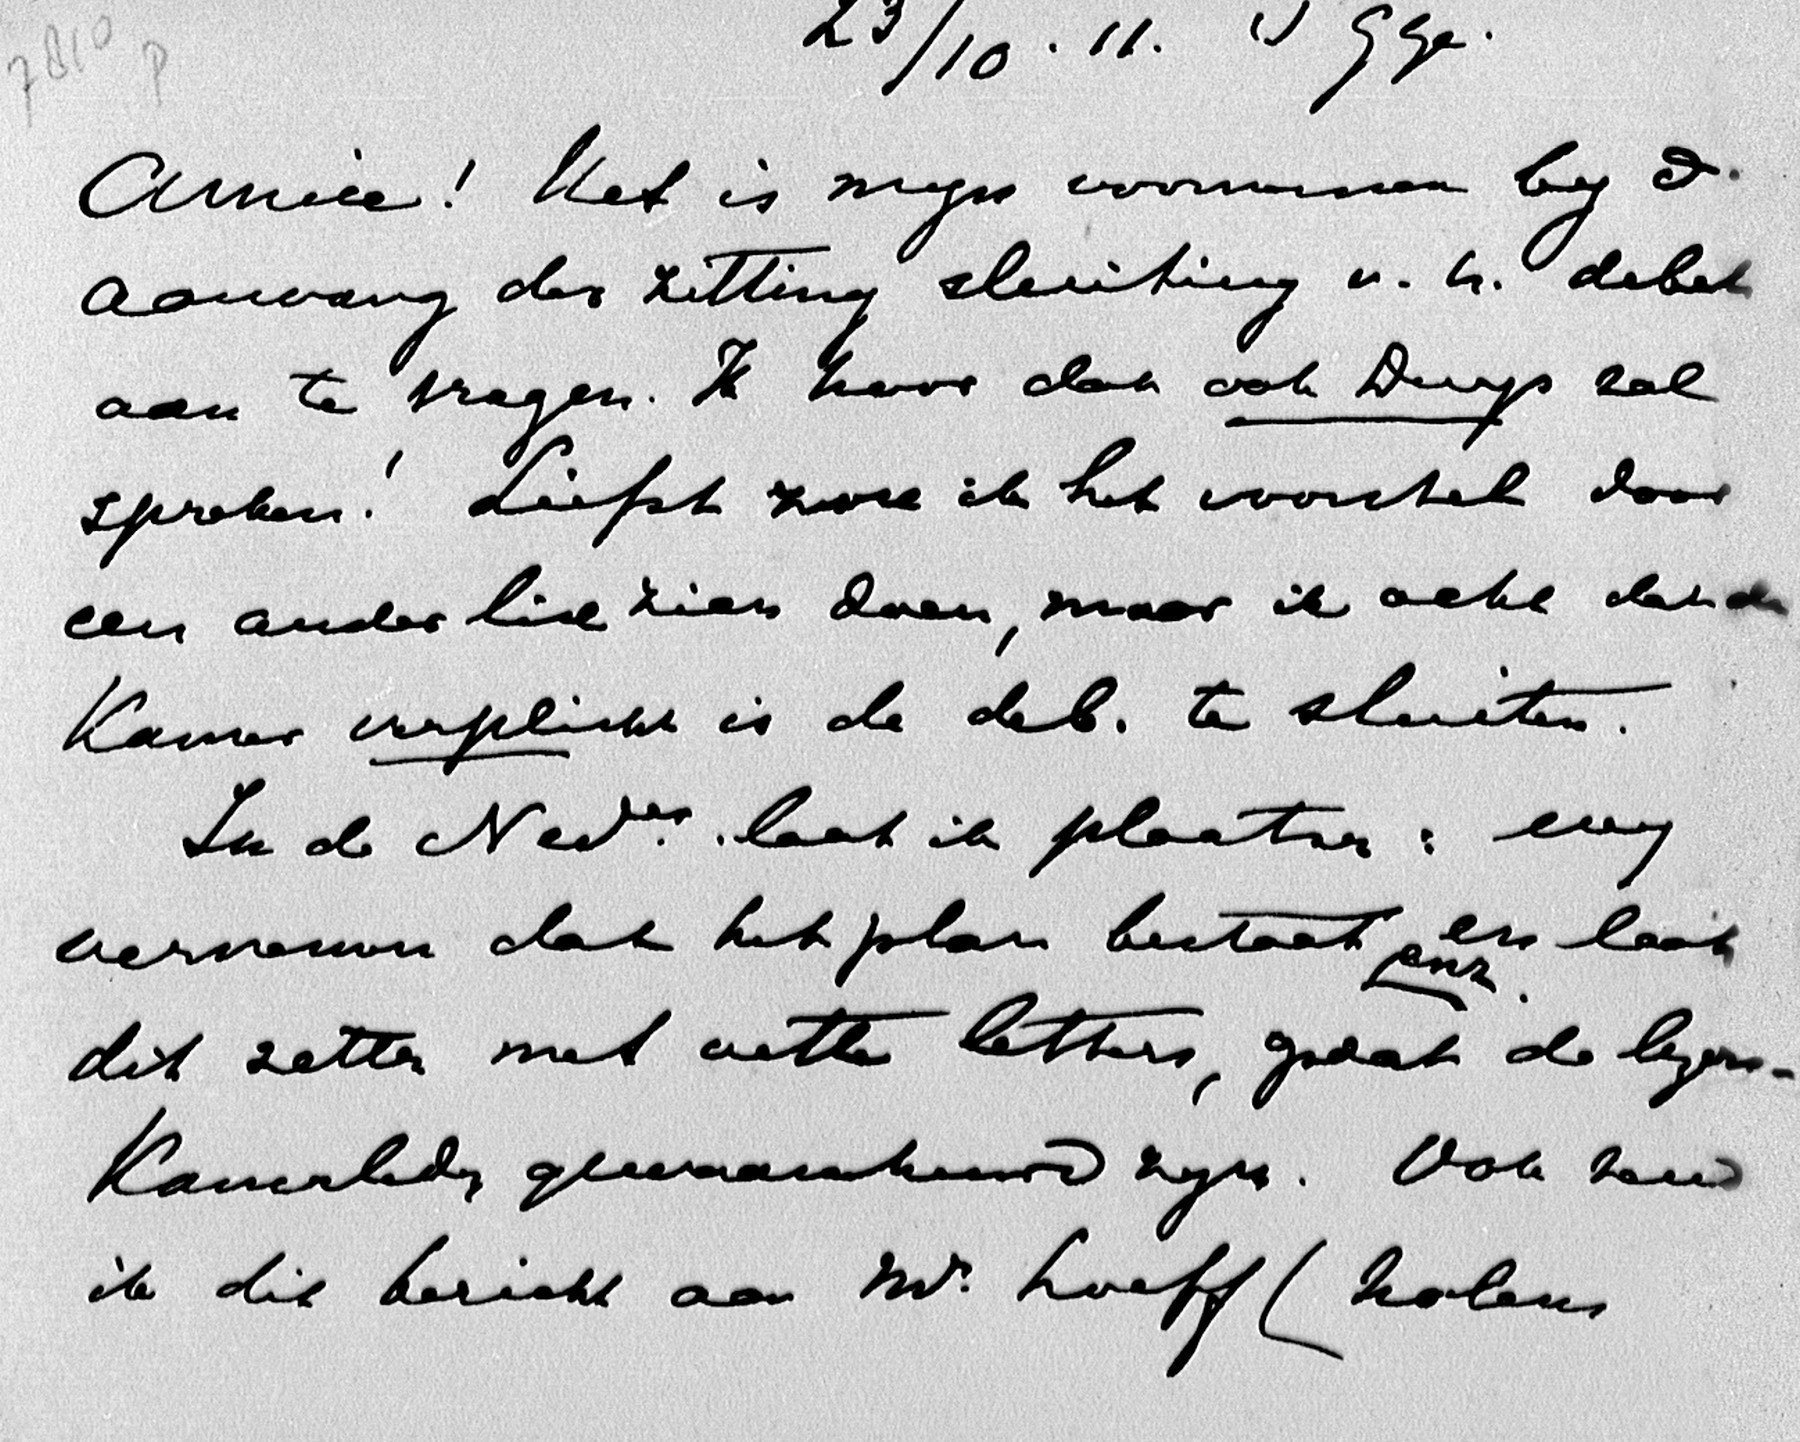 7810
P
23/10.11. 's Gge.
Amice! Het is mijn voornemen bij d.
aanvang der zitting sluiting v. h. debat
aan te vragen. Ik hoor dat ook Duys zal
spreken! Liefst zoue ik het voorstel door
een ander lid zien doen, maar ik acht dat de
Kamer verplicht is de deb. te sluiten.
In de Ned^er. laat ik plaatsen: wij
vernemen dat het plan bestaat enz. en laat
dit zetten met vette letters, zodat de
Kamerleden gewaarschuwd zijn. Ook zend
ik dit bericht aan Mr. Loeff (Nolens